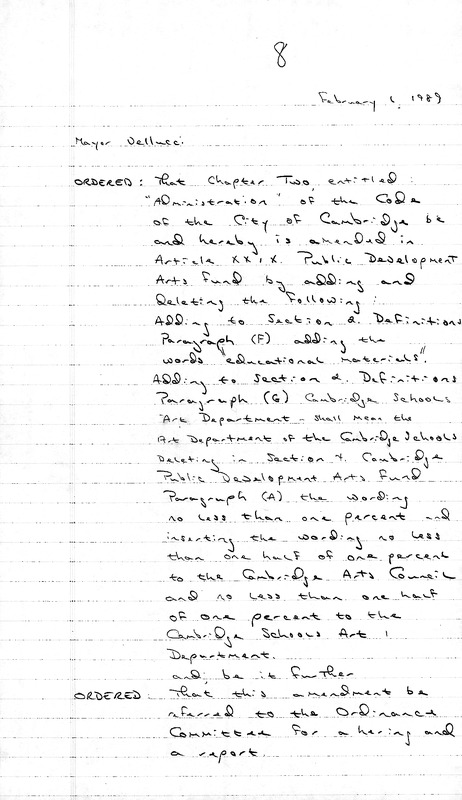 8
February 6, 1989
Mayor Vellucci
ORDERED: That Chapter Two, entitled:
"Administration" of the Code
of the City of Cambridge be
and hereby is amended in
Article XXIX. Public Development
Arts Fund by adding and
deleting the following:
Adding to Section 2. Definitions
Paragraph (F) adding the
words "educational materials".
Adding to Section 2. Definitions
Paragraph (G) Cambridge Schools
"Art Department - shall mean the
Art Department of the Cambridge Schools
Deleting in Section 4. Cambridge
Public Development Arts Fund
Paragraph (A) the wording
no less than one percent and
inserting the wording no less
than one half of one percent
to the Cambridge Arts Council
and no less than one half
of one percent to the
Cambridge Schools Art
Department.
and; be it further
ORDERED: That this amendment be
referred to the Ordinance
Committee for a hering and
a report.